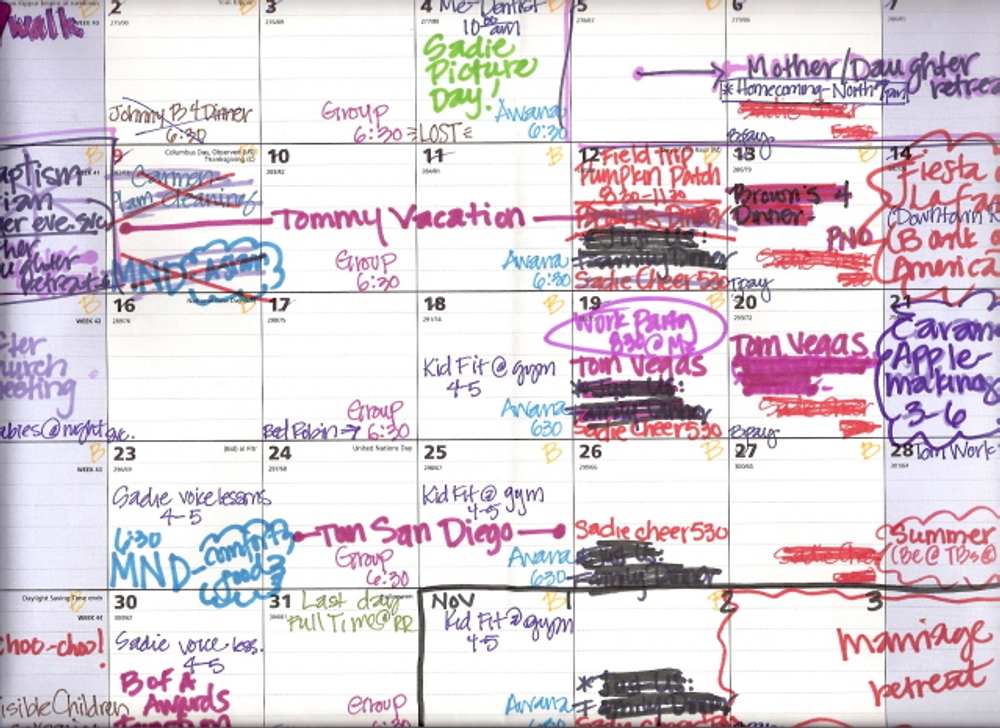 walk
2
275/90
Johnny B 4 Dinner
6:30
3
Group
6:30
4
277/88
Me-Dentist
10 am
Sadie
Picture
Day!
LOST
Awana
6:30
5
6
Mother/Daughter
retrea
* Homecoming - North 7pm
7
WEEK 41
aptism
ian
er eve. svc
her
retreat
9
Columbus Day, Observed (US)
Thanksgiving (C)
Carmen
Cleaning
MND Asian
10
283/82
Tommy Vacation
Group
6:30
11
284/81
Awana
6:30
12
Field trip
Pumpkin Patch
8:30-11:30
Just Us:
Family Dinner
Sadie Cheer 530
13
286/79
Brown's 4
Dinner
PNO
Sadie Cheer
14
Fiesta
Lafa
(Downtown
(Bank
America
WEEK 42
urch
eeting
abies@night svc.
16
289/76
17
290/75
Group
6:30
Red Robin →
18
291/74
Kid Fit @ gym
4-5
Awana
630
19
Work Party
830@M
Tom Vegas
* Just Us:
Family Dinner
Sadie Cheer 530
20
293/72
Tom Vegas
Sadie Cheer
21
Carame
Apple
making
3-6
WEEK 43
23
296/69
Sadie voice lessons
4-5
6:30
MND - comfort
food
24
297/68
United Nations Day
Tom San Diego
Group
6:30
25
298/67
Kid Fit @ gym
4-5
Awana
630
26
299/66
Sadie cheer 530
Just Us:
Family Dinner
27
300/65
Sadie Cheer
28
301/64
Tom Work
Summer
(Be @ TBs @
Daylight Saving Time ends
WEEK 44
choo-choo!
isible Children
30
303/62
Sadie voice less.
4-5
B of A
Awards
31
304/61
Last day
Full Time @ RR
Group
6:30
Nov
1
Kid Fit @ gym
4-5
Awana
2
* Just Us:
Family Dinner
3
Marriage
retreat